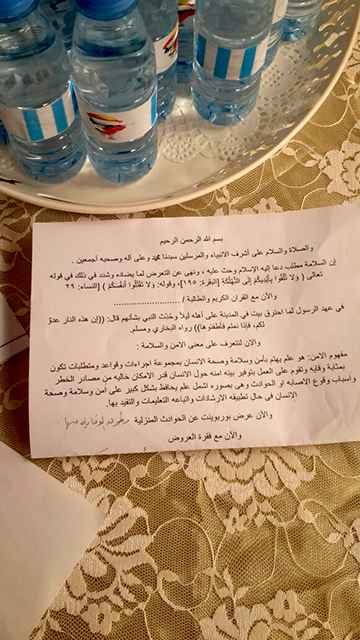 بسم الله الرحمن الرحيم
والصلاة والسلام على أشرف الانبياء والمرسلين سيدنا محمد وعلى آله وصحبه اجمعين .
إن السلامة مطلب دعا إليه الإسلام وحث عليه ، ونهى عن التعرض لما يضاده وشدد في ذلك في قوله
تعالى ( وَلَا تُلْقُوا بِأَيْدِيكُمْ إِلَى التَّهْلُكَةِ ) [البقرة: ١٩٥]، وقوله: وَلَا تَقْتُلُوا أَنفُسَكُمْ ) [النساء: ٢٩
والآن مع القران الكريم والطالبة / ..........................
في عهد الرسول لما احترق بيت في المدينة على أهله ليلاً وحُدّث النبي بشأنهم قال: ((إن هذه النار عدوّ
لكم، فإذا نمتم فأطفئوها)) رواه البخاري ومسلم.
والان لنتعرف على معنى الامن والسلامة :
مفهوم الامن: هو علم يهتم بأمن وسلامة وصحة الانسان بمجموعة اجراءات وقواعد ومتطلبات تكون
بمثابة وقايه وتقوم على العمل بتوفير بيئه امنه حول الانسان قدر الامكان خاليه من مصادر الخطر
وأسباب وقوع الاصابه او الحوادث وهي بصوره اشمل علم يحافظ بشكل كبير على امن وسلامة وصحة
الانسان في حال تطبيقه الإرشادات واتباعه التعليمات والتقيد بها.
والآن عرض بوربوينت عن الحوادث المنزلية
والآن مع فقرة العروض